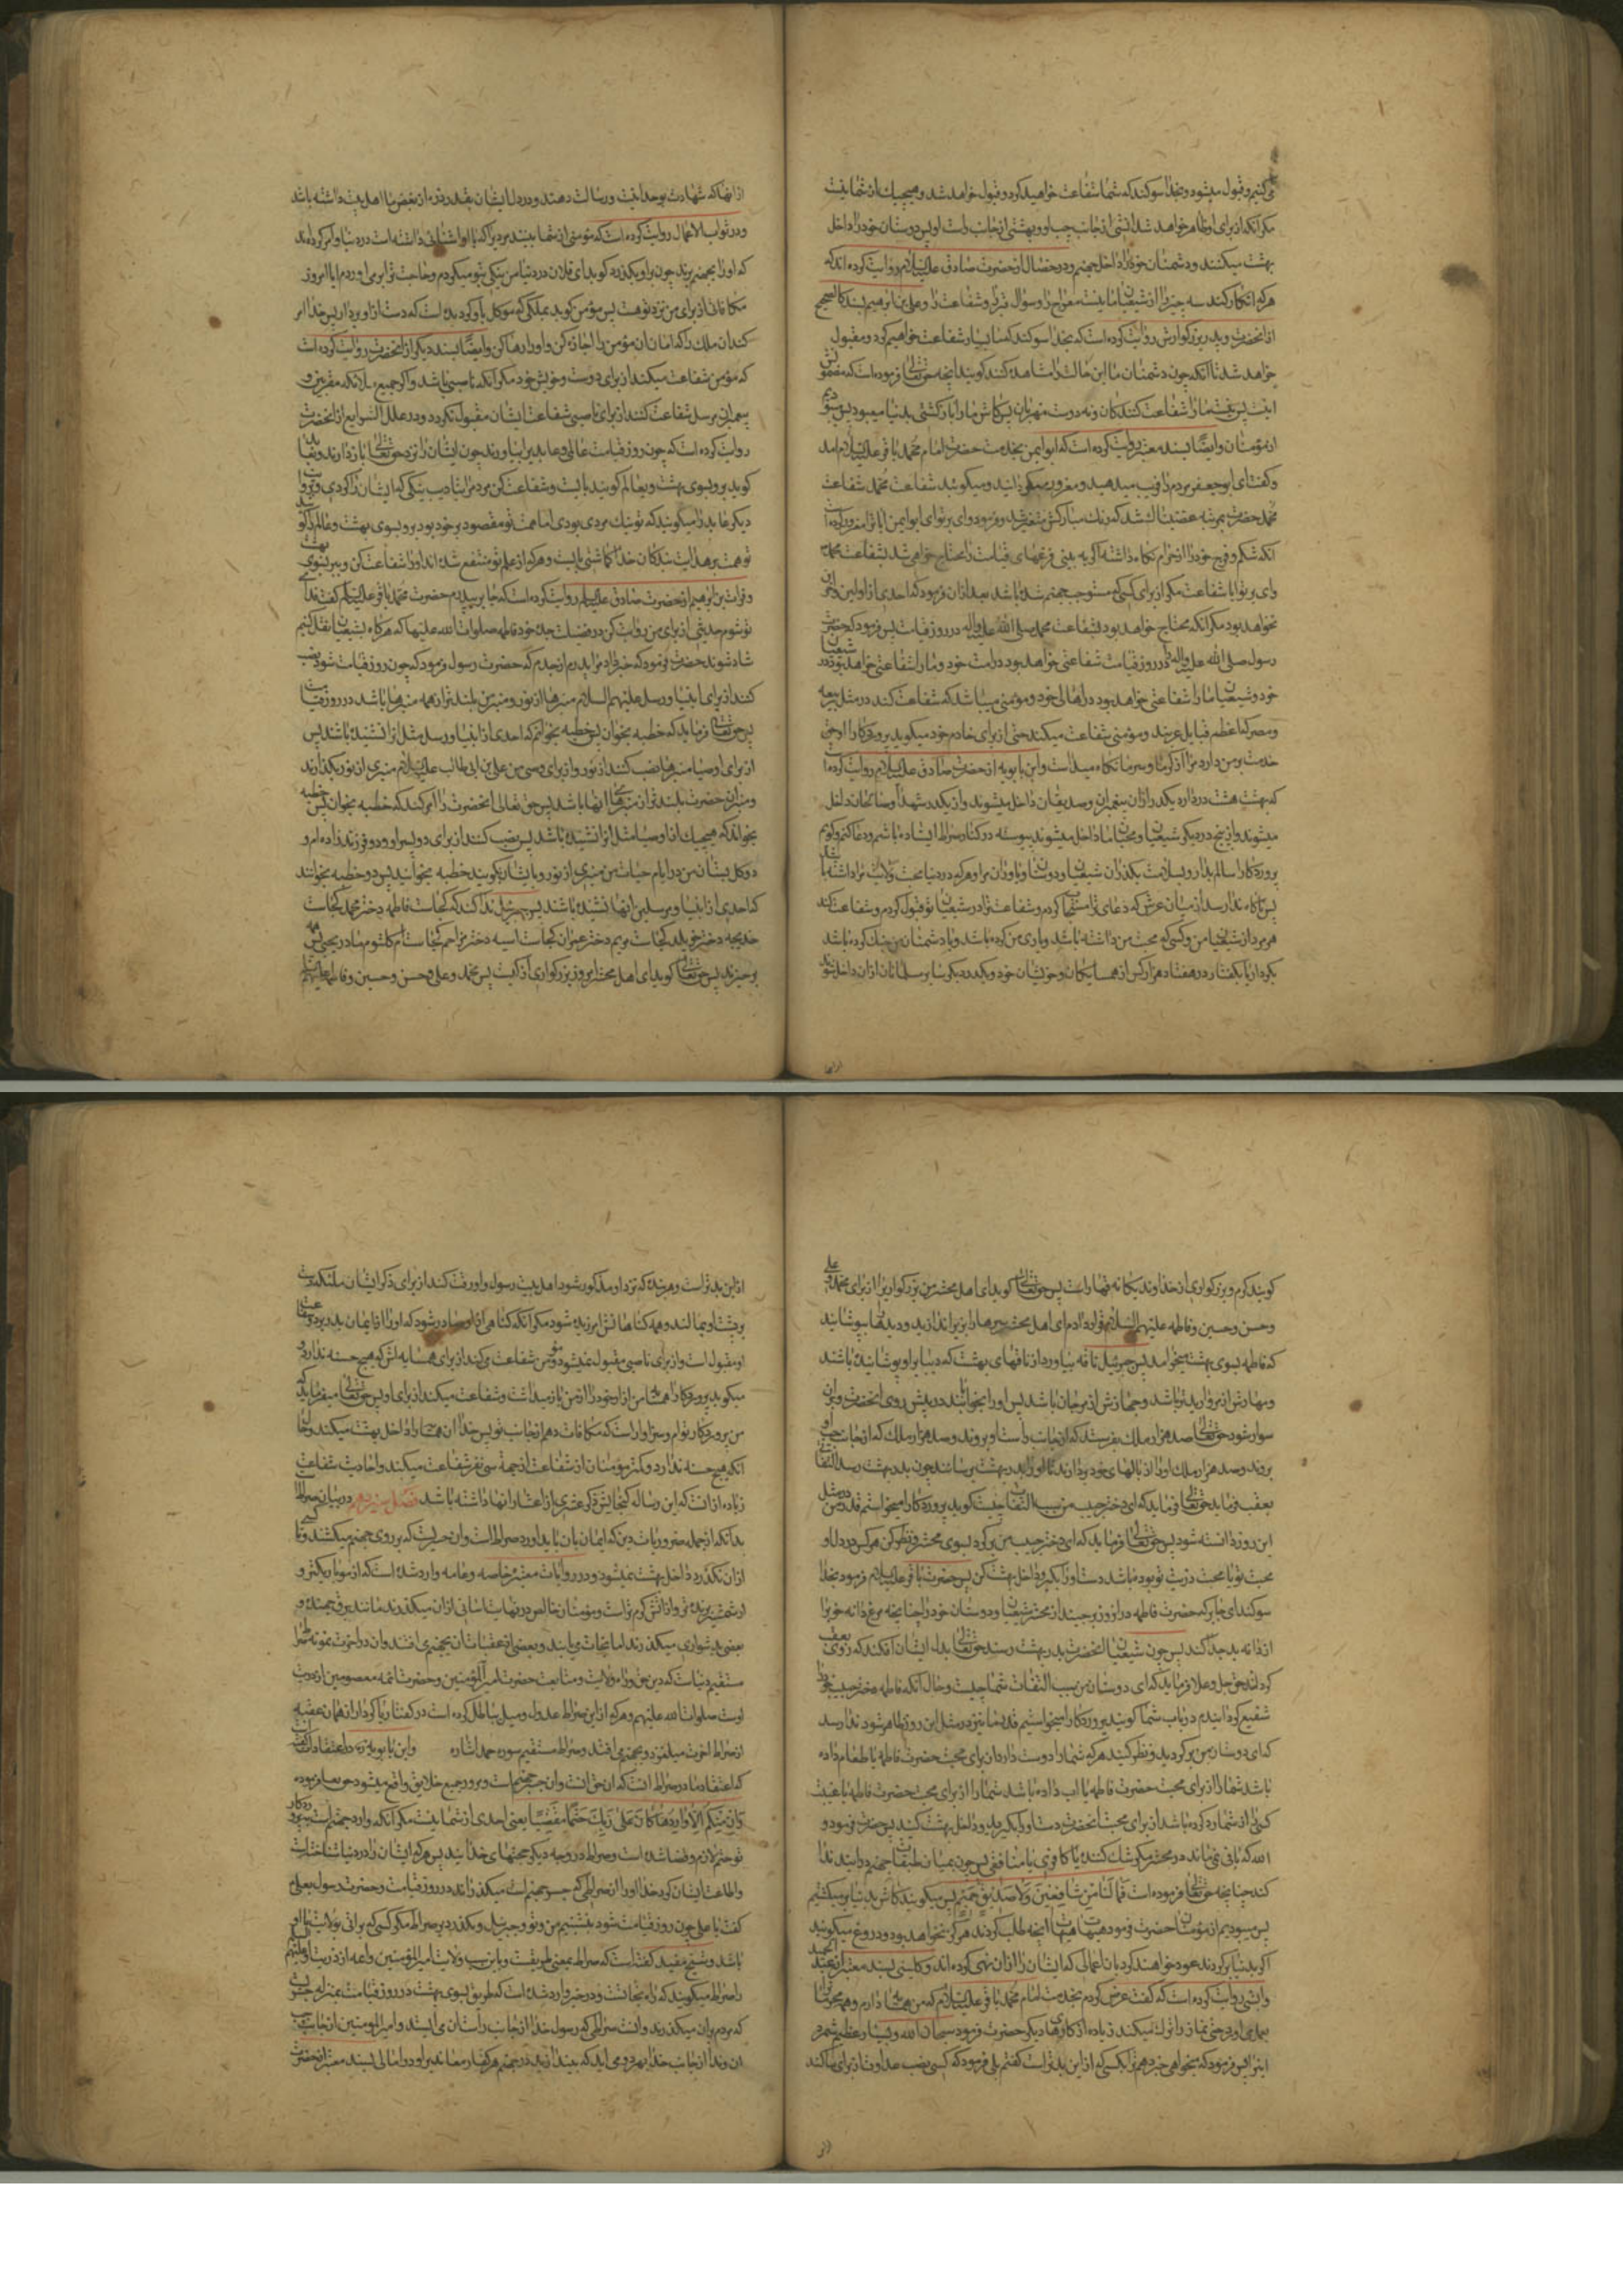 می‌کنیم و قبول میشود و بخدا سوکند که شما شفاعت خواهید کرد و قبول خواهد شد و هیچیک از شما نیست
مکر آنکه از برای او ظاهر خواهد شد اتشی از جانب چپ او و بهشتی از جانب راست او پس دوستان خود را داخل
بهشت میکنند و دشمنان خود را داخل جهنم و در خصال از حضرت صادق علیه السلام روایت کرده اند که
هر که انکار کند سه چیز را از شیعیان ما نیست معراج را و سوال قبر را و شفاعت را و علی بن ابرهیم بسند کالصحیح
از انحضرت و پدر بزرکوارش روایت کرده است که بخدا سوکند که ما بسیار شفاعت خواهیم کرد و مقبول
خواهد شد تا آنکه چون دشمنان ما این حالت را مشاهده کنند کویند آنچه حق تعالی فرموده است که مضمونش
اینست پس نیست ما را شفاعت کنندکان و نه دوست مهربان پس کاش ما را باز کشتی بدنیا میبود پس میبودیم
از مؤمنان وایضا بسند معتبر روایت کرده است که ابو ایمن بخدمت حضرت امام محمد باقر علیه السلام امد
و کفت ای ابو جعفر مردم را فریب میدهید و مغرور میکردانید و میکوئید شفاعت محمد شفاعت
محمد حضرت بمرتبه غضبناک شد که رنک مبارکش متغیر شد و فرمود وای بر تو ای ابو ایمن ایا ترا مغرور کرده است
آنکه شکم و فرج خود را از حرام نکاه داشته اکر به بینی فزعهای قیامت را محتاج خواهی شد بشفاعت محمد
وای بر تو ایا شفاعت مکر از برای کسی که مستوجب جهنم شده باشد بعد از ان فرمود که احدی از اولین و اخرین
نخواهد بود مکر آنکه محتاج خواهد بود بشفاعت محمد صلی الله علیه واله در روز قیامت پس فرمود که حضرت
رسول صلی الله علیه واله را در روز قیامت شفاعتی خواهد بود در امت خود و ما را شفاعتی خواهد بود در شیعیان
خود و شیعیان ما را شفاعتی خواهد بود در اهالی خود و مؤمنی میباشد که شفاعت کند در مثل ربیعه
و مضر که اعظم قبایل عربند و مؤمنی شفاعت میکند حتی از برای خادم خود میکوید پروردکارا او حق
خدمت بر من دارد مرا از کرما و سرما نکاه میداشت و ابن بابویه از حضرت صادق علیه السلام روایت کرده است
که بهشت هشت در دارد یکدر از ان پیغمبران و صدیقان داخل میشوند و از یکدر شهدا و صالحان داخل
میشوند و از پنج در دیکر شیعیان و محبان ما داخل میشوند پیوسته در کنار صراط ایستاده باشم و دعا کنم و کویم
پروردکارا سالم بدار و بسلامت بکذران شیعیان و دوستان و یاوران مرا و هر که در دنیا محبت ولایت مرا داشته باشد
پس ناکاه ندا رسد از میان عرش که دعای ترا مستجاب کردم و شفاعت ترا در شیعیان تو قبول کردم و شفاعت کند
هر مرد از شیعیان من و کسی که محبت من داشته باشد و یاری من کرده باشد و با دشمنان من جنک کرده باشد
بکردار یا بکفتار در هفتاد هزار کس از همسایکان و خویشان خود و یکدر دیکر سایر مسلمانان از ان داخل شوند
از انها که شهادت بوحدانیت و رسالت دهند و در دل ایشان بقدر ذره از بغض ما اهل بیت داشته باشد
و در ثواب الاعمال روایت کرده است که مؤمنی از شما بیند مردی را که با او اشنائی داشته است در دنیا و امر کرده اند
که او را بجهنم برند چون بر او بکذرد کوید ای فلان در دنیا من نیکی بتو میکردم و حاجت ترا بر می اوردم ایا امروز
مکافاتی از برای من نزد تو هست پس مؤمن کوید بملکی که موکل باو کردیده است که دست از او بردار پس خدا امر
کند ان ملک را که امان ان مؤمن را اجازه کن و او را رها کن وایضا بسند دیکر از انحضرت روایت کرده است
که مؤمن شفاعت میکند از برای دوست و خویش خود مکر آنکه ناصبی باشد و اکر جمیع ملائکه مقربین و
پیغمبران مرسل شفاعت کنند از برای ناصبی شفاعت ایشان مقبول نکردد و در علل الشرایع از انحضرت
روایت کرده است که چون روز قیامت عالمی و عابدی را بیاورند چون ایشان را نزد حق تعالی باز دارند بعابد
کوید برو بسوی بهشت و بعالم کویند بایست و شفاعت کن مردم را بتادیب نیکی که ایشان را کردی و بروایت
دیکر عابد را میکویند که تو نیک مردی بودی اما همت تو مقصود بر خود بود برو بسوی بهشت و عالم را کوید
تو همت بر هدایت بندکان خدا کماشتی بایست و هر که از علم تو منتفع شده اند او را شفاعت کن و ببر بسوی بهشت
و فرات بن ابرهیم از حضرت صادق علیه السلام روایت کرده است که جابر بپدرم حضرت محمد باقر علیه السلام کفت فدای
تو شوم حدیثی از برای من روایت کن در فضیلت جده خود فاطمه صلوات الله علیها که هرکاه بشیعیان نقل کنم
شاد شوند حضرت فرمود که خبر داد مرا پدرم از جدم که حضرت رسول فرمود که چون روز قیامت شود نصب
کنند از برای انبیا و رسل علیهم السلام منبرها از نور و منبر من بلندتر از همه منبرها باشد در روز قیامت
پس حق تعالی فرماید که خطبه بخوان پس خطبه بخوانم که احدی از انبیا و رسل مثل انرا نشنیده باشند پس
از برای اوصیا منبرها نصب کنند از نور و از برای وصی من علی بن ابی طالب علیه السلام منبری از نور بکذارند
و منبر ان حضرت بلندتر از منبرهای انها باشد پس حق تعالی انحضرت را امر کند که خطبه بخوان پس خطبه
بخواند که هیچیک از اوصیا مثل انرا نشنیده باشد پس نصب کنند از برای دو پسر او و دو فرزند زاده ام و
دو کل بستان من در ایام حیات من منبری از نور و بایشان بکویند خطبه بخوانید پس دو خطبه بخوانند
که احدی از انبیا و مرسلین انها نشنیده باشند پس جبرئیل ندا کند که کجاست فاطمه دختر محمد کجاست
خدیجه دختر خویلد کجاست مریم دختر عمران کجاست اسیه دختر مزاحم کجاست ام کلثوم مادر یحیی پس همه
برخیزند پس حق تعالی کوید ای اهل محشر امروز بزرکواری از کیست پس محمد و علی و حسن و حسین و فاطمه علیهم السلام
کویند کرم و بزرکواری از خداوند یکانه قهار است پس حق تعالی کوید ای اهل محشر من بزرکواری را از برای محمد و علی
و حسن و حسین و فاطمه علیهم السلام قرار دادم ای اهل محشر سرها را بزیر اندازید و دیدها بپوشانید
که فاطمه بسوی بهشت میخواهد پس جبرئیل ناقه بیاورد از ناقهای بهشت که دیبا بر او پوشانیده باشند
و مهارش از مروارید تر باشد و جهازش از مرجان باشد پس او را بخوابانند در پیش روی انحضرت و بر ان
سوار شود حق تعالی صد هزار ملک بفرستد که از جانب راست او بروند و صد هزار ملک که از جانب چپ او
بروند و صد هزار ملک او را از بالهای خود بردارند تا او را بدر بهشت برسانند چون بدر بهشت رسد التفاتی
بعقب فرماید حق تعالی فرماید که ای دختر حبیب من سبب التفات چیست کوید پروردکارا میخواستم قدر من در مثل
این روز دانسته شود پس حق تعالی فرماید که ای دختر حبیب من برکرد بسوی محشر و نظر کن هر کس در دل او
محبت تو یا محبت ذریت تو بوده باشد دست او را بکیر و داخل بهشت کن پس حضرت باقر علیه السلام فرمود بخدا
سوکند ای جابر که حضرت فاطمه در انروز بر چیند از محشر شیعیان و دوستان خود را چنانچه مرغ دانه خوب را
از دانه بد جدا کند پس چون شیعیان انحضرت بدر بهشت رسند حق تعالی بدل ایشان افکند که روی بعقب
کردانند حق جل و علا فرماید که ای دوستان من سبب التفات شما چیست و حال آنکه فاطمه دختر حبیب خود را
شفیع کردانیدم در باب شما کویند پروردکارا میخواستیم قدر ما نیز در مثل این روز ظاهر شود ندا رسد
که ای دوستان من برکردید و نظر کنید هر که شما را دوست دارد از برای محبت حضرت فاطمه یا طعام داده
باشد شما را از برای محبت حضرت فاطمه یا اب داده باشد شما را از برای محبت حضرت فاطمه یا غیبت
کسی را از شما رد کرده باشد از برای محبت انحضرت دست او را بکیرید و داخل بهشت کنید پس حضرت فرمود و
الله که باقی نمی‌ماند در محشر مکر شک کننده یا کافری یا منافقی پس چون بمیان طبقات جهنم درایند ندا
کنند چنانچه حق تعالی فرموده است فَمَا لَنَا مِن شَافِعِینَ وَلَا صَدِیقٍ حَمِیمٍ پس میکویند کاش بدنیا بر میکشتیم
پس میبودیم از مؤمنان حضرت فرمود هیهات هیهات انچه طلب کردند هرکز نخواهد بود و دروغ میکویند
اکر بدنیا برکردند عود خواهند کرد بان اعمالی که ایشان را از ان نهی کرده اند و کلینی بسند معتبر از عبد الحمید
وابشی روایت کرده است که کفت عرض کردم بخدمت امام محمد باقر علیه السلام که من همسایه دارم و همه محرمات را
بعمل می اورد حتی نماز را ترک میکند زیاده از کارهای دیکر حضرت فرمود سبحان الله و بسیار عظیم شمرد
اینرا پس فرمود که میخواهی خبر دهم ترا بکسی که از این بدتر است کفتم بلی فرمود که کسی نصب عداوت از برای ما کند
از این بدتر است و هر بنده که نزد او مذکور شود اهل بیت رسول و او رقت کند از برای ذکر ایشان ملئکه دست
بر پشت او بمالند و همه کناهانش امرزیده شود مکر آنکه کناهی از او صادر شود که او را از ایمان بدر برد و شفاعت
او مقبول است و از برای ناصبی مقبول نمیشود و مؤمن شفاعت می‌کند از برای همسایه اش که هیچ حسنه ندارد و
میکوید پروردکارا همسایه من ازار خود را از من باز میداشت و شفاعت میکند از برای او پس حق تعالی میفرماید که
من پروردکار توام و سزاوار است که مکافات دهم از جانب تو پس خدا ان همسایه را داخل بهشت میکند و حال
آنکه هیچ حسنه ندارد و کمتر مؤمنان از شفاعت از جمله سی نفر شفاعت میکند و احادیث شفاعت
زیاده از انست که این رساله کنجایش ذکر عشری از اعشار انها داشته باشد فصل سیزدهم در بیان صراط
بدانکه از جمله ضروریات دین که ایمان بان باید اورد صراط است و ان جسریست که بر روی جهنم میکشند و تا کسی
از ان نکذرد داخل بهشت نمیشود و در روایات معتبره خاصه و عامه وارد شده است که از مو باریکتر و
از شمشیر برنده تر و از اتش کرم تر است و مؤمنان خالص در نهایت اسانی از ان میکذرند مانند برق جهنده و
بعضی بدشواری میکذرند اما نجات می‌یابند و بعضی از عقبات ان بجهنم می افتند و ان در اخرت نمونه صراط
مستقیم دنیاست که دین حق و راه ولایت و متابعت حضرت امیر المؤمنین و حضرات ائمه معصومین از ذریت
اوست صلوات الله علیهم و هر که از این صراط عدول و میل بباطل کرده است در کفتار یا کردار از همان عقبه
از صراط اخرت میلغزد و بجهنم می افتد و صراط مستقیم سوره حمد اشاره و ابن بابویه ره در اعتقادات کفته است
که اعتقاد ما در صراط انست که ان حق است و ان جسر جهنم است و مرور جمیع خلایق واقع میشود حق تعالی فرموده
وَاِن مِنکُم اِلَّا وَارِدُهَا کَانَ عَلَی رَبِّکَ حَتمًا مَقضِیًّا یعنی احدی از شما نیست مکر آنکه وارد جهنم است بر پروردکار
تو حتم و لازم و قضا شده است و صراط در وجه دیکر حجتهای خدایند پس هر که ایشان را در دنیا شناخت
و اطاعت ایشان کرد خدا او را از صراطی که جسر جهنم است میکذراند در روز قیامت و حضرت رسول بعلی
کفت یا علی چون روز قیامت شود بنشینم من و تو و جبرئیل و نکذرد بر صراط مکر کسی که براتی بولایت تو با او
باشد و شیخ مفید کفته است که صراط بمعنی طریقست و باین سبب ولایت امیر المؤمنین و ائمه از ذریت او علیهم السلام
را صراط میکویند که راه نجاتست و در خبر وارد شده است که طریق بسوی بهشت در روز قیامت بمنزله جسریست
که مردم بر ان میکذرند و انست صراطی که رسول خدا از جانب راست ان می ایستد و امیر المؤمنین از جانب چپ
ان و ندا از جانب خدا بهر دو می اید که بیندازید در جهنم هر کفار معاند را و در امالی بسند معتبر از حضرت